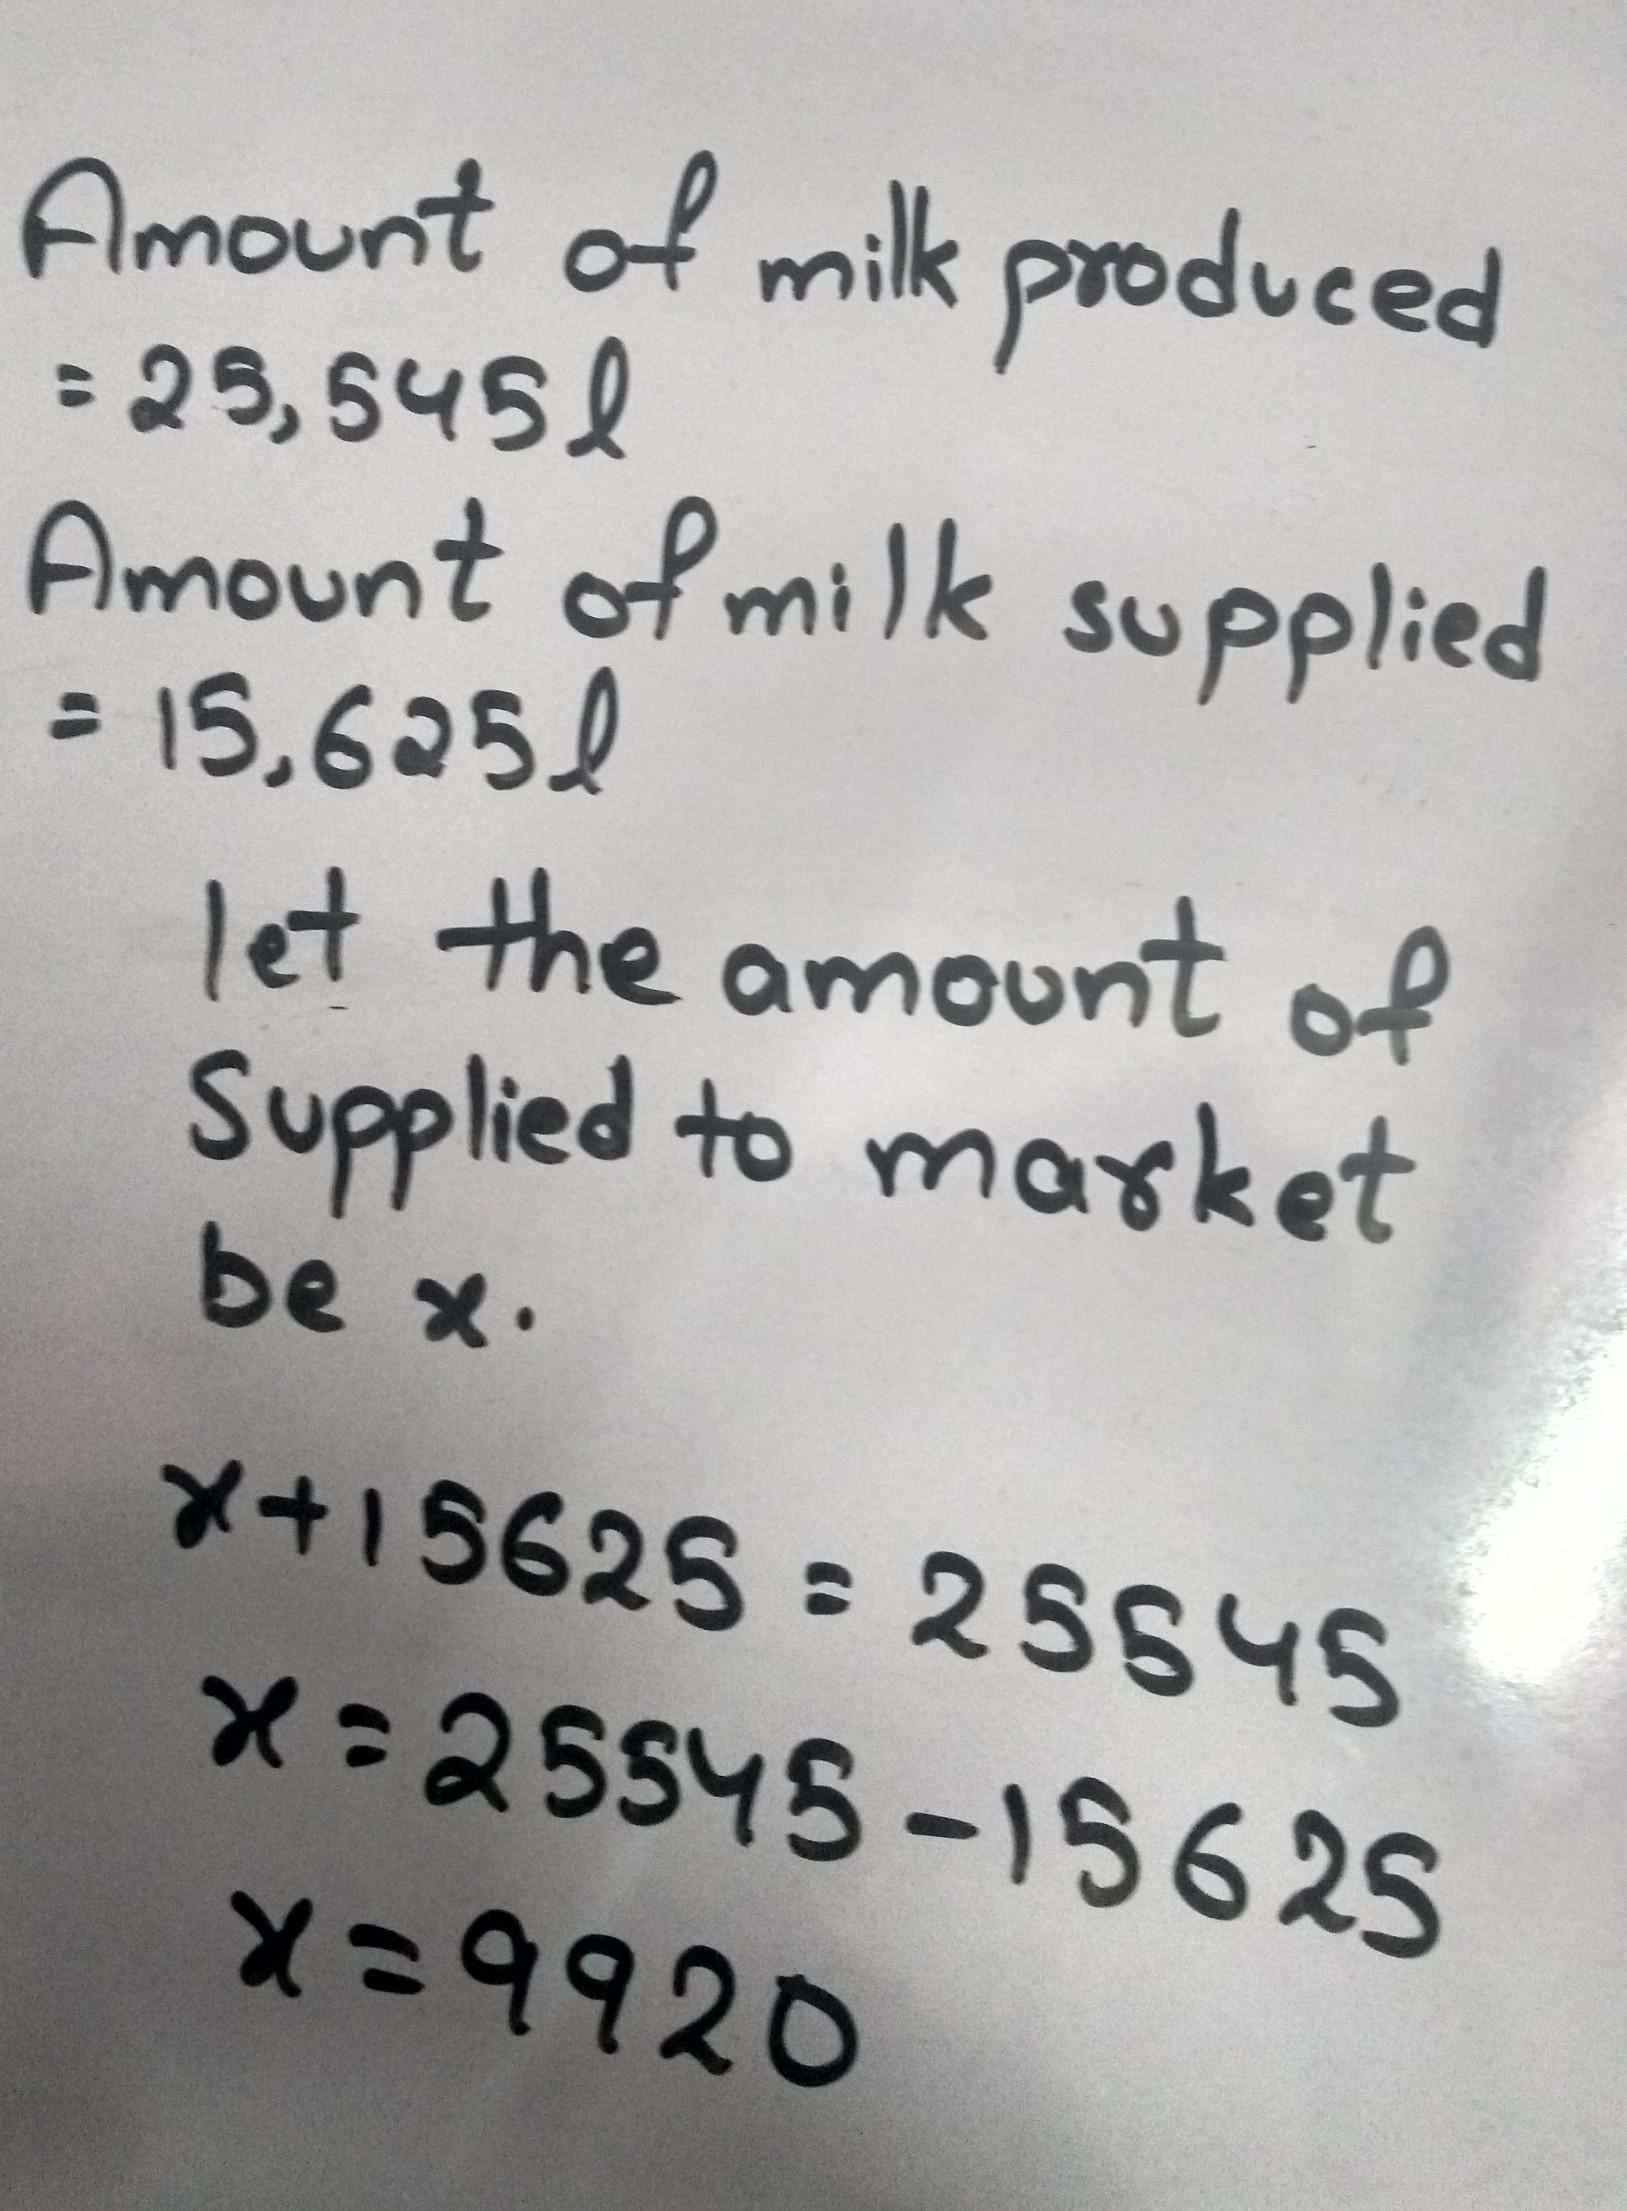 Amount of milk produced
= 25,545 l
Amount of milk supplied
= 15,625 l
let the amount of
Supplied to market
be x.
x+15625 = 25545
x = 25545 - 15625
x = 9920